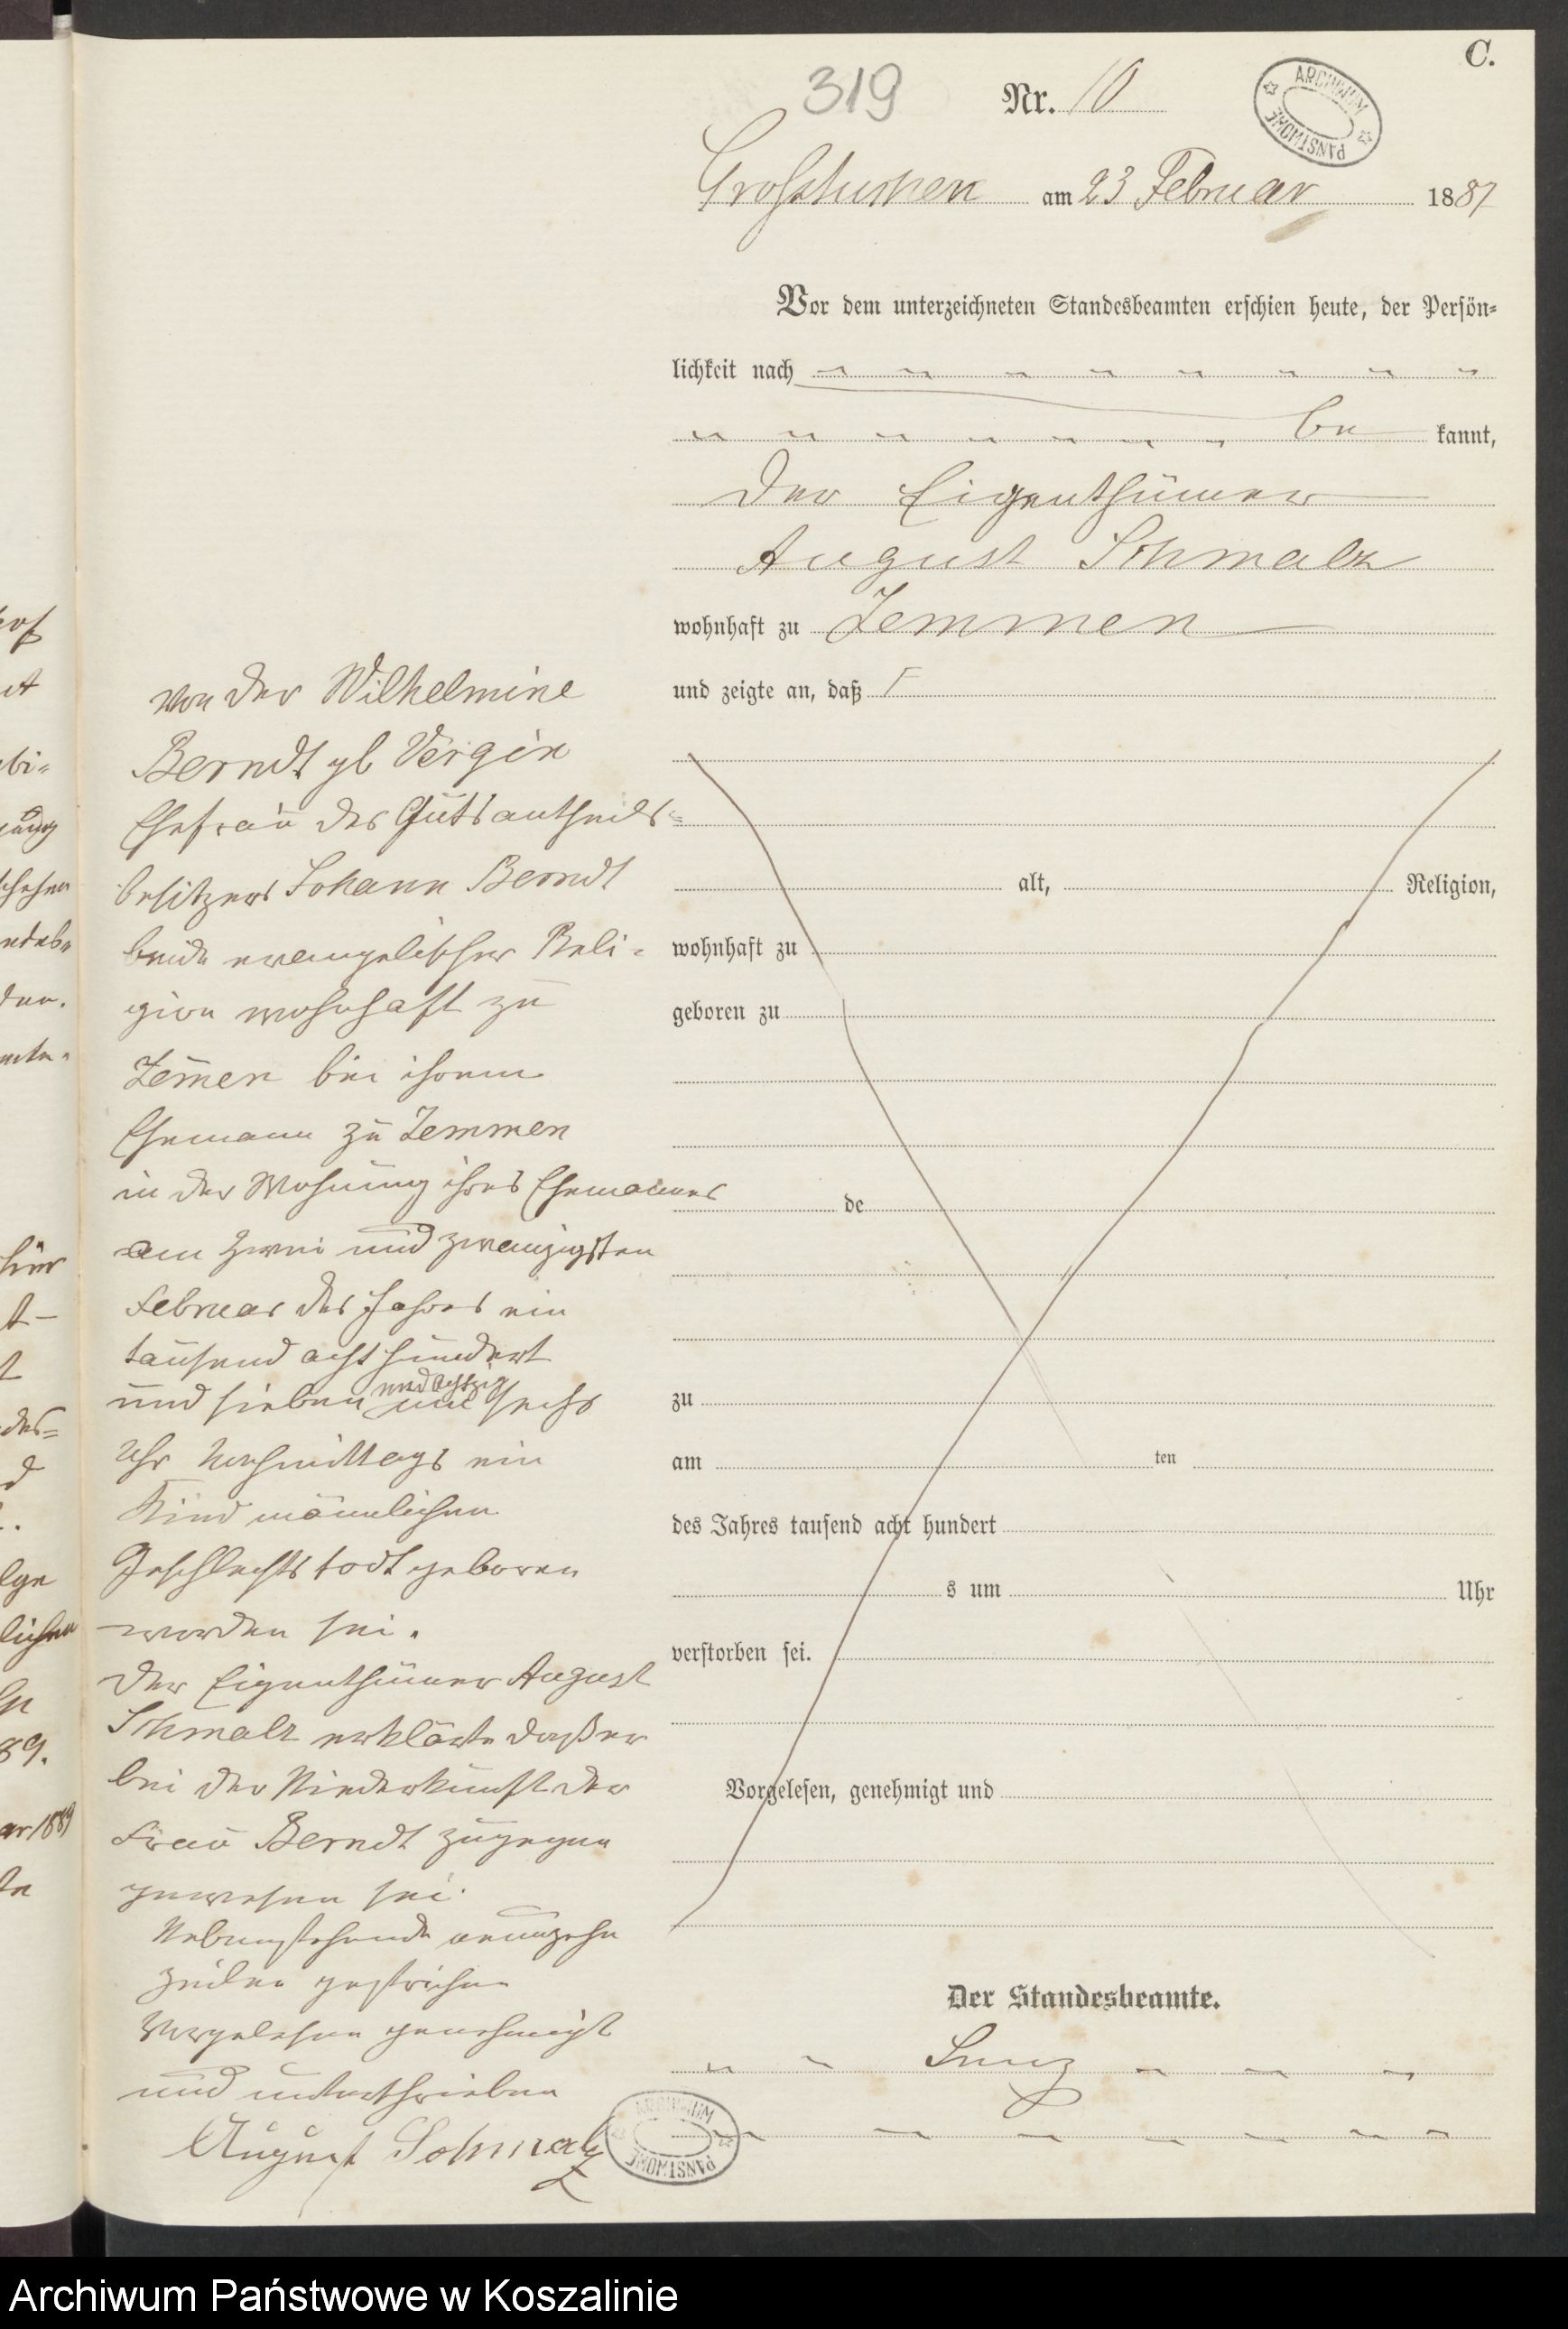 C.
319 Nr. 10
ARCHIWUM PAŃSTWOWE
Grosstuchen am 23 Februar 1887
Vor dem unterzeichneten Standesbeamten erschien heute, der Persön-
lichkeit nach
be kannt,
der Eigenthümer
August Schmalz
wohnhaft zu Zemmen
und zeigte an, daß
alt, Religion,
wohnhaft zu
geboren zu
de
zu
am ten
des Jahres tausend acht hundert
s um Uhr
verstorben sei.
Vorgelesen, genehmigt und
Der Standesbeamte.
von der Wilhelmine
Berndt gb Vergin
Ehefrau des Gutsantheils-
besitzers Johann Berndt
beide evangelischer Reli-
gion wohnhaft zu
Zemen bei ihrem
Ehemann zu Zemmen
in der Wohnung ihres Ehemannes
am zwei und zwanzigsten
Februar des Jahres ein
tausend acht hundert
und sieben und achtzig um sechs
Uhr Nachmittags ein
Kind männlichen
Geschlechts todt geboren
worden sei.
Der Eigenthümer August
Schmalz erklärte daß er
bei der Niederkunft der
Frau Berndt zugegen
gewesen sei.
Nebenstehende neunzehn
Zeilen gestrichen
Vorgelesen genehmigt
und unterschrieben
August Schmalz
ARCHIWUM PAŃSTWOWE
Archiwum Państwowe w Koszalinie